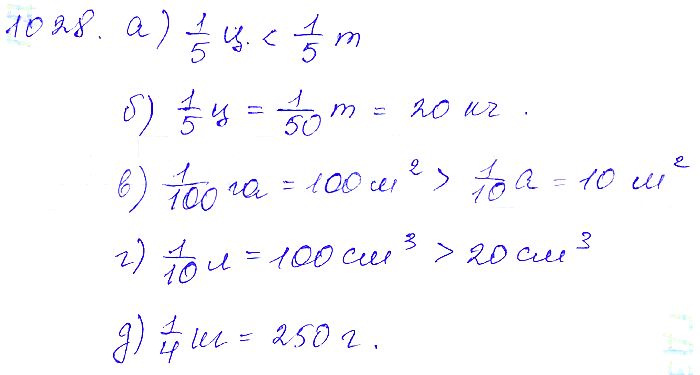 1028. а) 1/5 ц. < 1/5 т
б) 1/5 ц = 1/50 т = 20 кг.
в) 1/100 га = 100 м² > 1/10 а = 10 м²
г) 1/10 л = 100 см³ > 20 см³
д) 1/4 кг = 250 г.